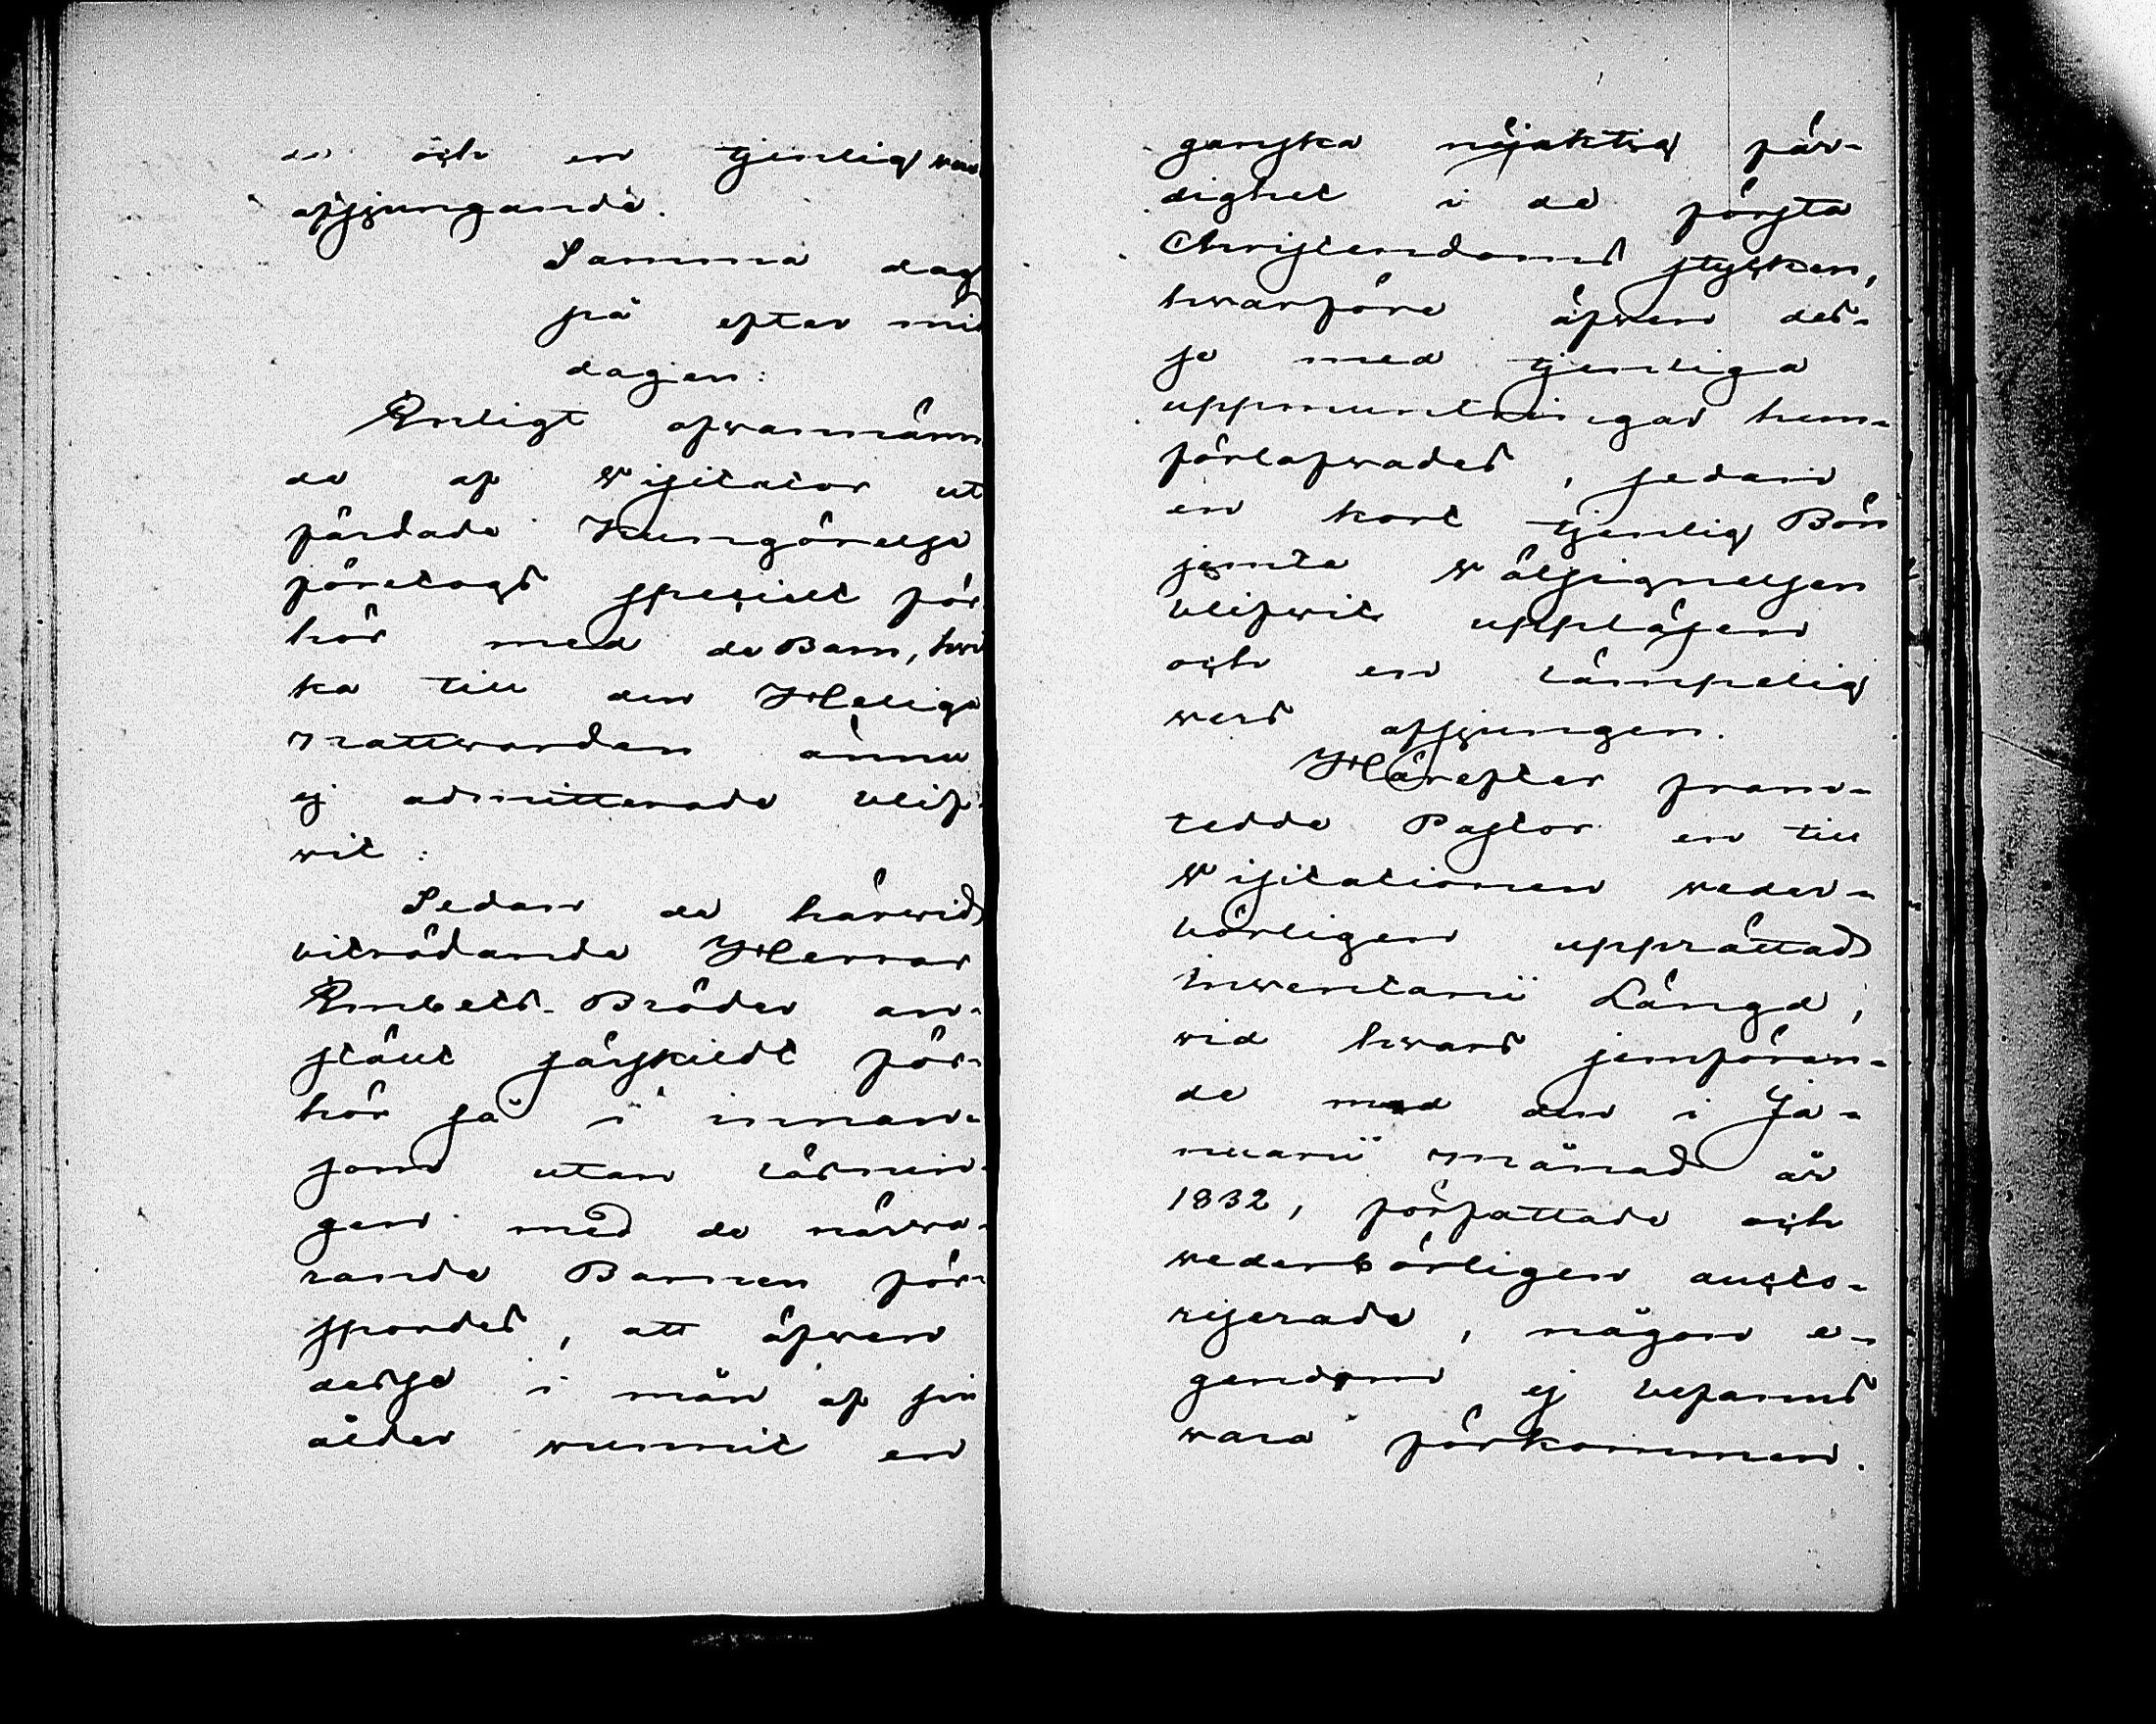 de och en tjenlig
afsjungande.
Samma dag
på efter mid
dagen:
Enligt ofvannämn
de af Wisitator ut
färdade Kungörelse
företogs specielt för
hör med de Barn, hvil
ka till den Heliga
Nattwarden ännu
ej admitterade blif-
wit:
Sedan de härwid
biträdande Herrar
Embets-Bröder an-
stält särskildt för-
hör så i innan-
som utan läsnin-
gen med de närwa-
rande Barnen för-
spordes, att äfwen
desse i mån af sin
ålder wunnit en
ganska nöjaktig fär-
dighet i de första
Christendoms stycken,
hwarföre äfwen des-
se med tjenliga
uppmuntringar hem-
förlofwades, sedan
en kort tjenlig Bön
jemte Wälsignelsen
blifwit uppläsen
och en lämpelig
wers afsjungen.
Härefter fram-
tedde Pastor en till
Wisitationen weder-
börligen upprättad
inwentarii Längd,
wid hwars jemföran-
de med den i Ja-
nuarii månad år
1832, författade och
wederbörligen aucto-
riserade, någon e-
gendom ej befanns
wara förkommen.